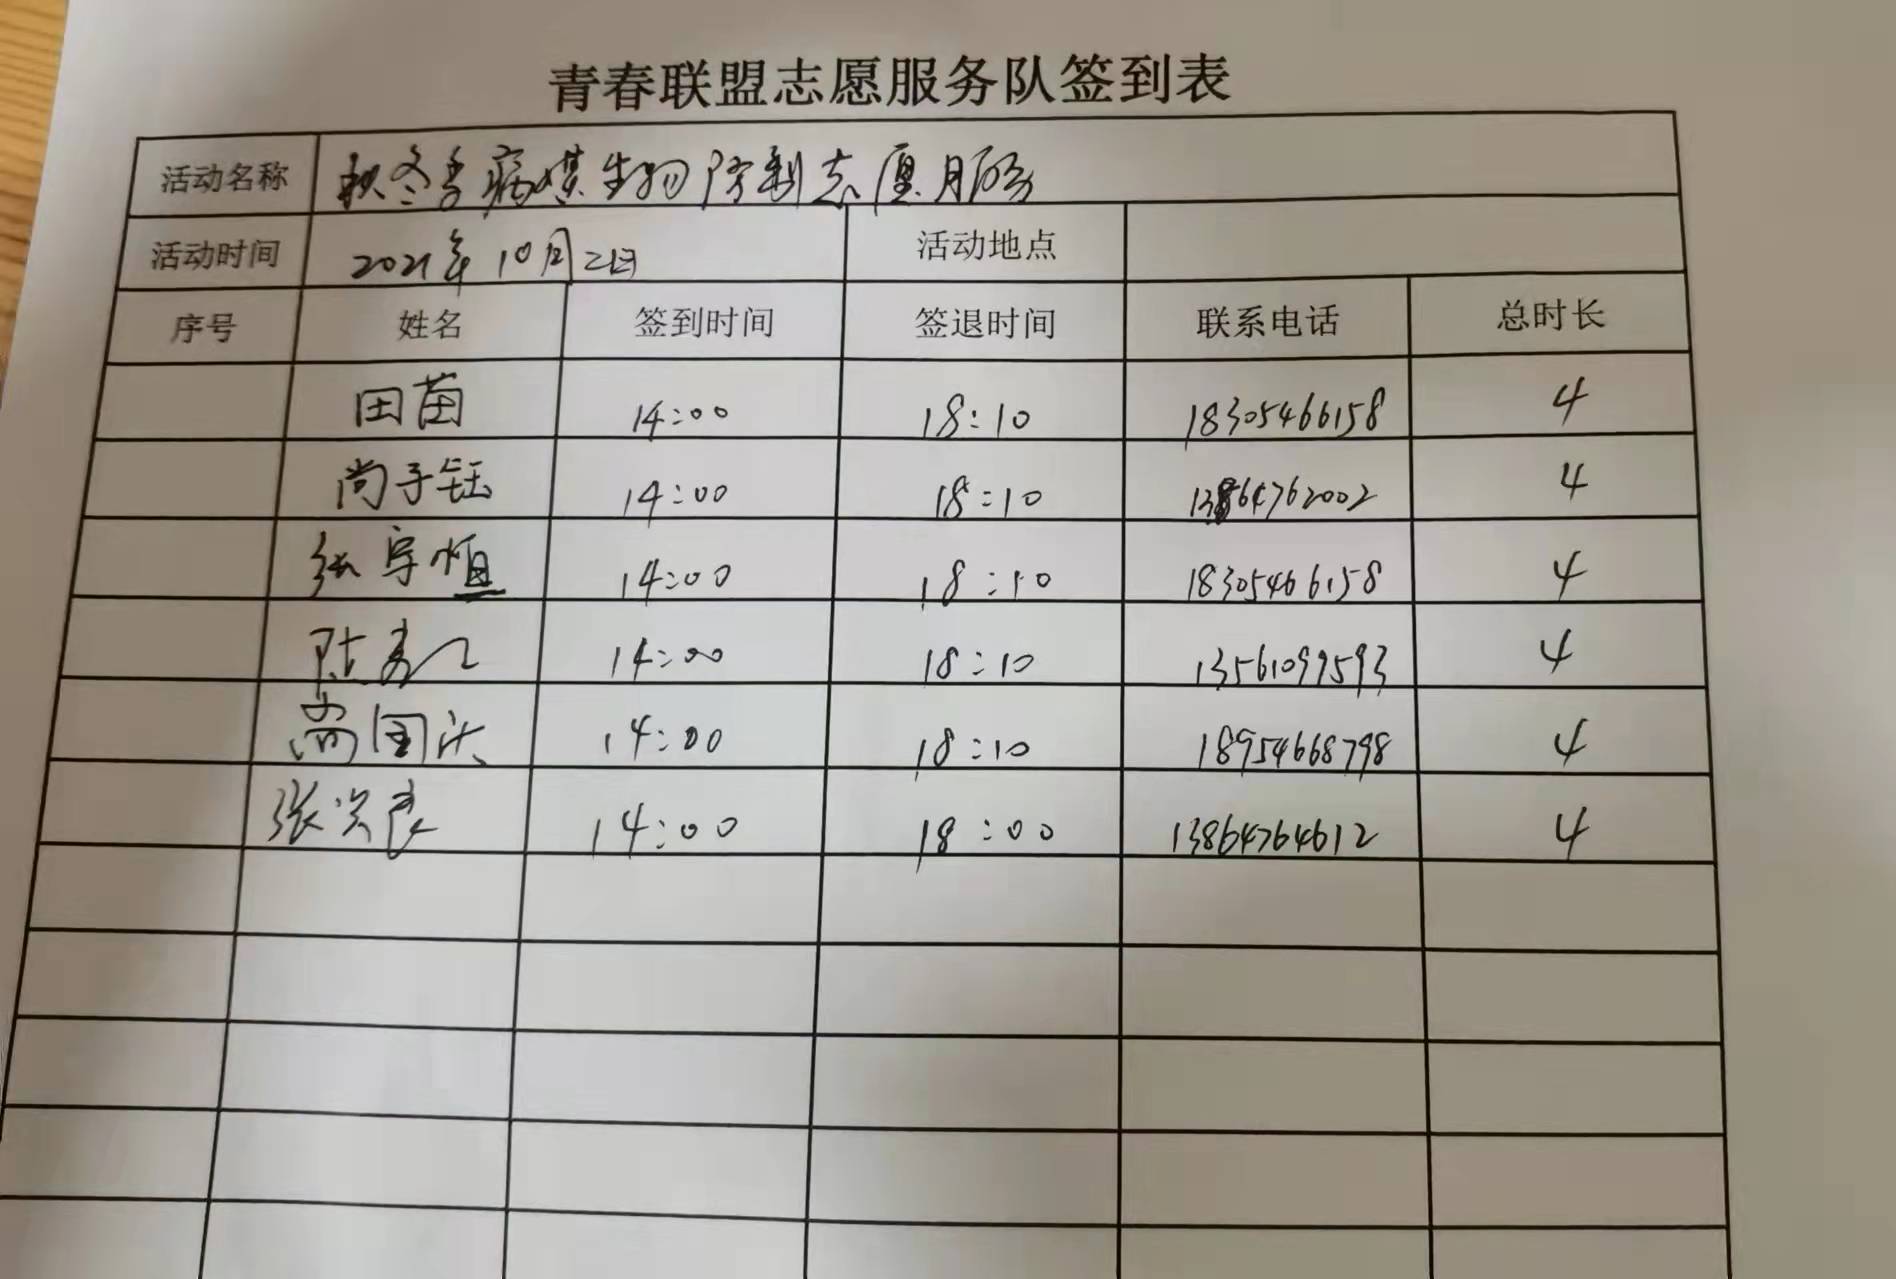 青春联盟志愿服务队签到表
活动名称 秋冬季病媒生物防制志愿服务
活动时间 2021年10月2日 活动地点
序号 姓名 签到时间 签退时间 联系电话 总时长
田苗 14:00 18:10 18305466158 4
尚子钰 14:00 18:10 13864762002 4
张宇恒 14:00 18:10 18305466158 4
14:00 18:10 13561099593 4
尚国庆 14:00 18:10 18954668798 4
张兴良 14:00 18:00 13864764612 4